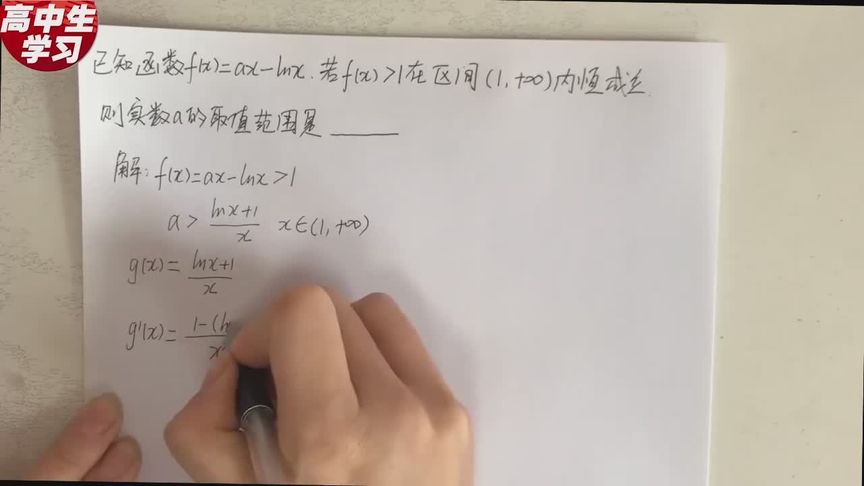 高中生
学习
已知函数f(x)=ax-lnx.若f(x)>1在区间(1,+∞)内恒成立.
则实数a的取值范围是______
解:f(x)=ax-lnx>1
a> \frac{lnx+1}{x} x∈(1,+∞)
g(x)= \frac{lnx+1}{x}
g'(x)=